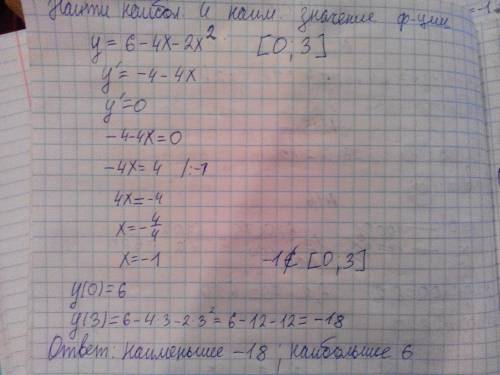 Найти наибол. и наим. значение ф-ции
y = 6 - 4x - 2x² [0, 3]
y' = -4 - 4x
y' = 0
-4-4x=0
-4x = 4 /:-1
4x = -4
x = -4/4
x = -1 -1 ∉ [0, 3]
y(0) = 6
y(3) = 6 - 4·3 - 2·3² = 6 - 12 - 12 = -18
Ответ: наименьшее -18; наибольшее 6